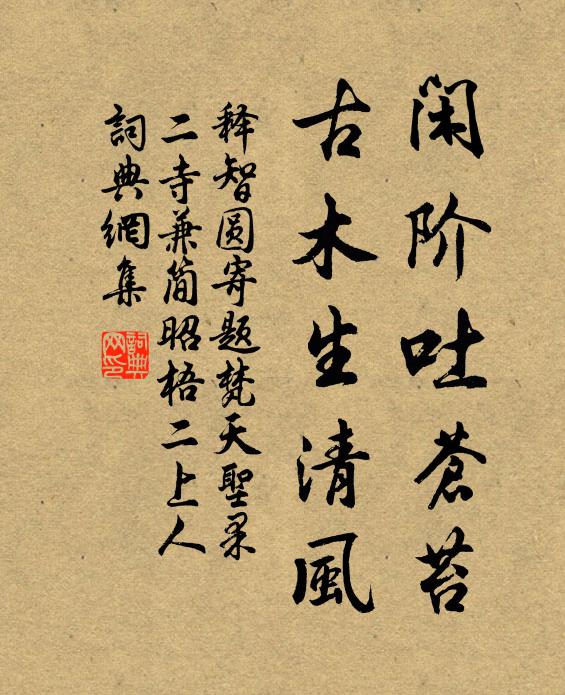 闲阶吐蒼苔
古木生清風
释智圓寄题梵天聖果
二寺兼简昭梧二上人
詞典網集
詞典网印